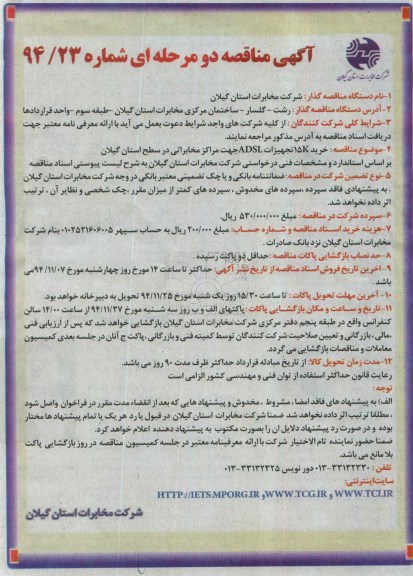 شرکت مخابرات استان گیلان
آگهی مناقصه دو مرحله ای شماره ۹۴/۲۳
۱-نام دستگاه مناقصه گذار : شرکت مخابرات استان گیلان
۲-آدرس دستگاه مناقصه گذار : رشت - گلسار - ساختمان مرکزی مخابرات استان گیلان -طبقه سوم -واحد قراردادها
۳-شرایط کلی شرکت کنندگان : از کلیه شرکت های واجد شرایط دعوت بعمل می آید با ارائه معرفی نامه معتبر جهت
دریافت اسناد مناقصه به آدرس مذکور مراجعه نمایند.
۴-موضوع مناقصه : خرید ۱۵K تجهیزات ADSL جهت مراکز مخابراتی در سطح استان گیلان
بر اساس استاندارد و مشخصات فنی درخواستی شرکت مخابرات استان گیلان به شرح لیست پیوستی اسناد مناقصه
۵-نوع تضمین شرکت در مناقصه :ضمانتنامه بانکی و یا چک تضمینی معتبر بانکی در وجه شرکت مخابرات استان گیلان
. به پیشنهادی فاقد سپرده ،سپرده های مخدوش ، سپرده های کمتر از میزان مقرر ،چک شخصی و نظایر آن ، ترتیب
اثر داده نخواهد شد.
۶-سپرده شرکت در مناقصه : مبلغ ۵۳۰/۰۰۰/۰۰۰ ریال.
۷-هزینه خرید اسناد مناقصه و شماره حساب: مبلغ ۲۰۰/۰۰۰ ریال به حساب سپهر ۰۱۰۲۵۲۱۶۰۶۰۰۵ بنام شرکت
مخابرات استان گیلان نزد بانک صادرات .
۸-حد نصاب بازگشایی پاکات مناقصه: حداقل دو پاکت رسیده .
۹-آخرین تاریخ فروش اسناد مناقصه از تاریخ نشر آگهی: حداکثر تا ساعت ۱۴ مورخ روز چهارشنبه مورخ ۹۴/۱۱/۰۷ می
باشد .
۱۰-آخرین مهلت تحویل پاکات : تا ساعت ۱۵/۳۰ روز یک شنبه مورخ ۹۴/۱۱/۲۵ تحویل به دبیرخانه خواهد بود.
۱۱-تاریخ و ساعت و مکان بازگشایی پاکات : پاکتهای الف و ب روز سه شنبه مورخ ۹۴/۱۱/۲۷ از ساعت ۱۴/۰۰ سالن
کنفرانس واقع در طبقه پنجم دفتر مرکزی شرکت مخابرات استان گیلان بازگشایی خواهد شد که پس از ارزیابی فنی
،مالی ،بازرگانی و تعیین صلاحیت شرکت کنندگان توسط کمیته فنی و بازرگانی ،پاکت ج آنان در جلسه بعدی کمیسیون
معاملات و مناقصات بازگشایی می گردد.
۱۲-مدت زمان تحویل کالا: از تاریخ مبادله قرارداد حداکثر ظرف مدت ۹۰ روز می باشد.
رعایت قانون حداکثر استفاده از توان فنی و مهندسی کشور الزامی است
توجه :
الف) به پیشنهاد های فاقد امضا ، مشروط ، مخدوش و پیشنهاد هایی که بعد از انقضاء مدت مقرر در فراخوان واصل شود
، مطلقا ترتیب اثر داده نخواهد شد ضمنا شرکت مخابرات استان گیلان در قبول یا رد هر یک یا تمام پیشنهاد ها مختار
بوده و در صورت رد پیشنهاد دلایل آن را بصورت مکتوب به پیشنهاد دهنده اعلام خواهد کرد.
ضمنا حضور نماینده تام الاختیار شرکت با ارائه معرفینامه معتبر در جلسه کمیسیون مناقصه در روز بازگشایی پاکت
بلا مانع می باشد.
تلفن : ۳۳۱۳۲۳۳۰-۰۱۳ دور نویس ۳۳۱۳۲۳۲۵-۰۱۳
سایت اینترنتی:
WWW.TCI.IR و WWW.TCG.IR و HTTP://IETS.MPORG.IR
شرکت مخابرات استان گیلان